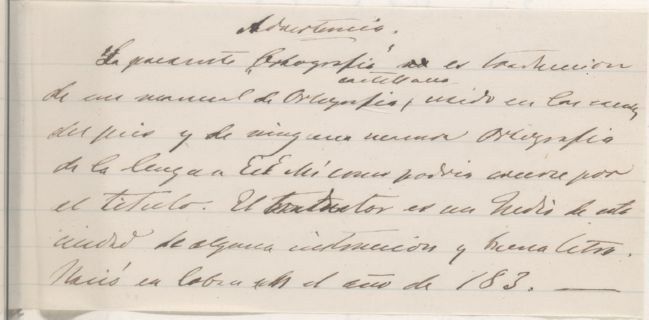 Advertencia.
La presente "Ortografía" es traduccion
castellana
de un manual de Ortografía, usado en las
del pais y de ninguna manera Ortografia
de la lengua como podria creerse por
el titulo. El traductor es un Indio de esta
ciudad de alguna instruccion y buena letra.
Nació en el año de 183. —